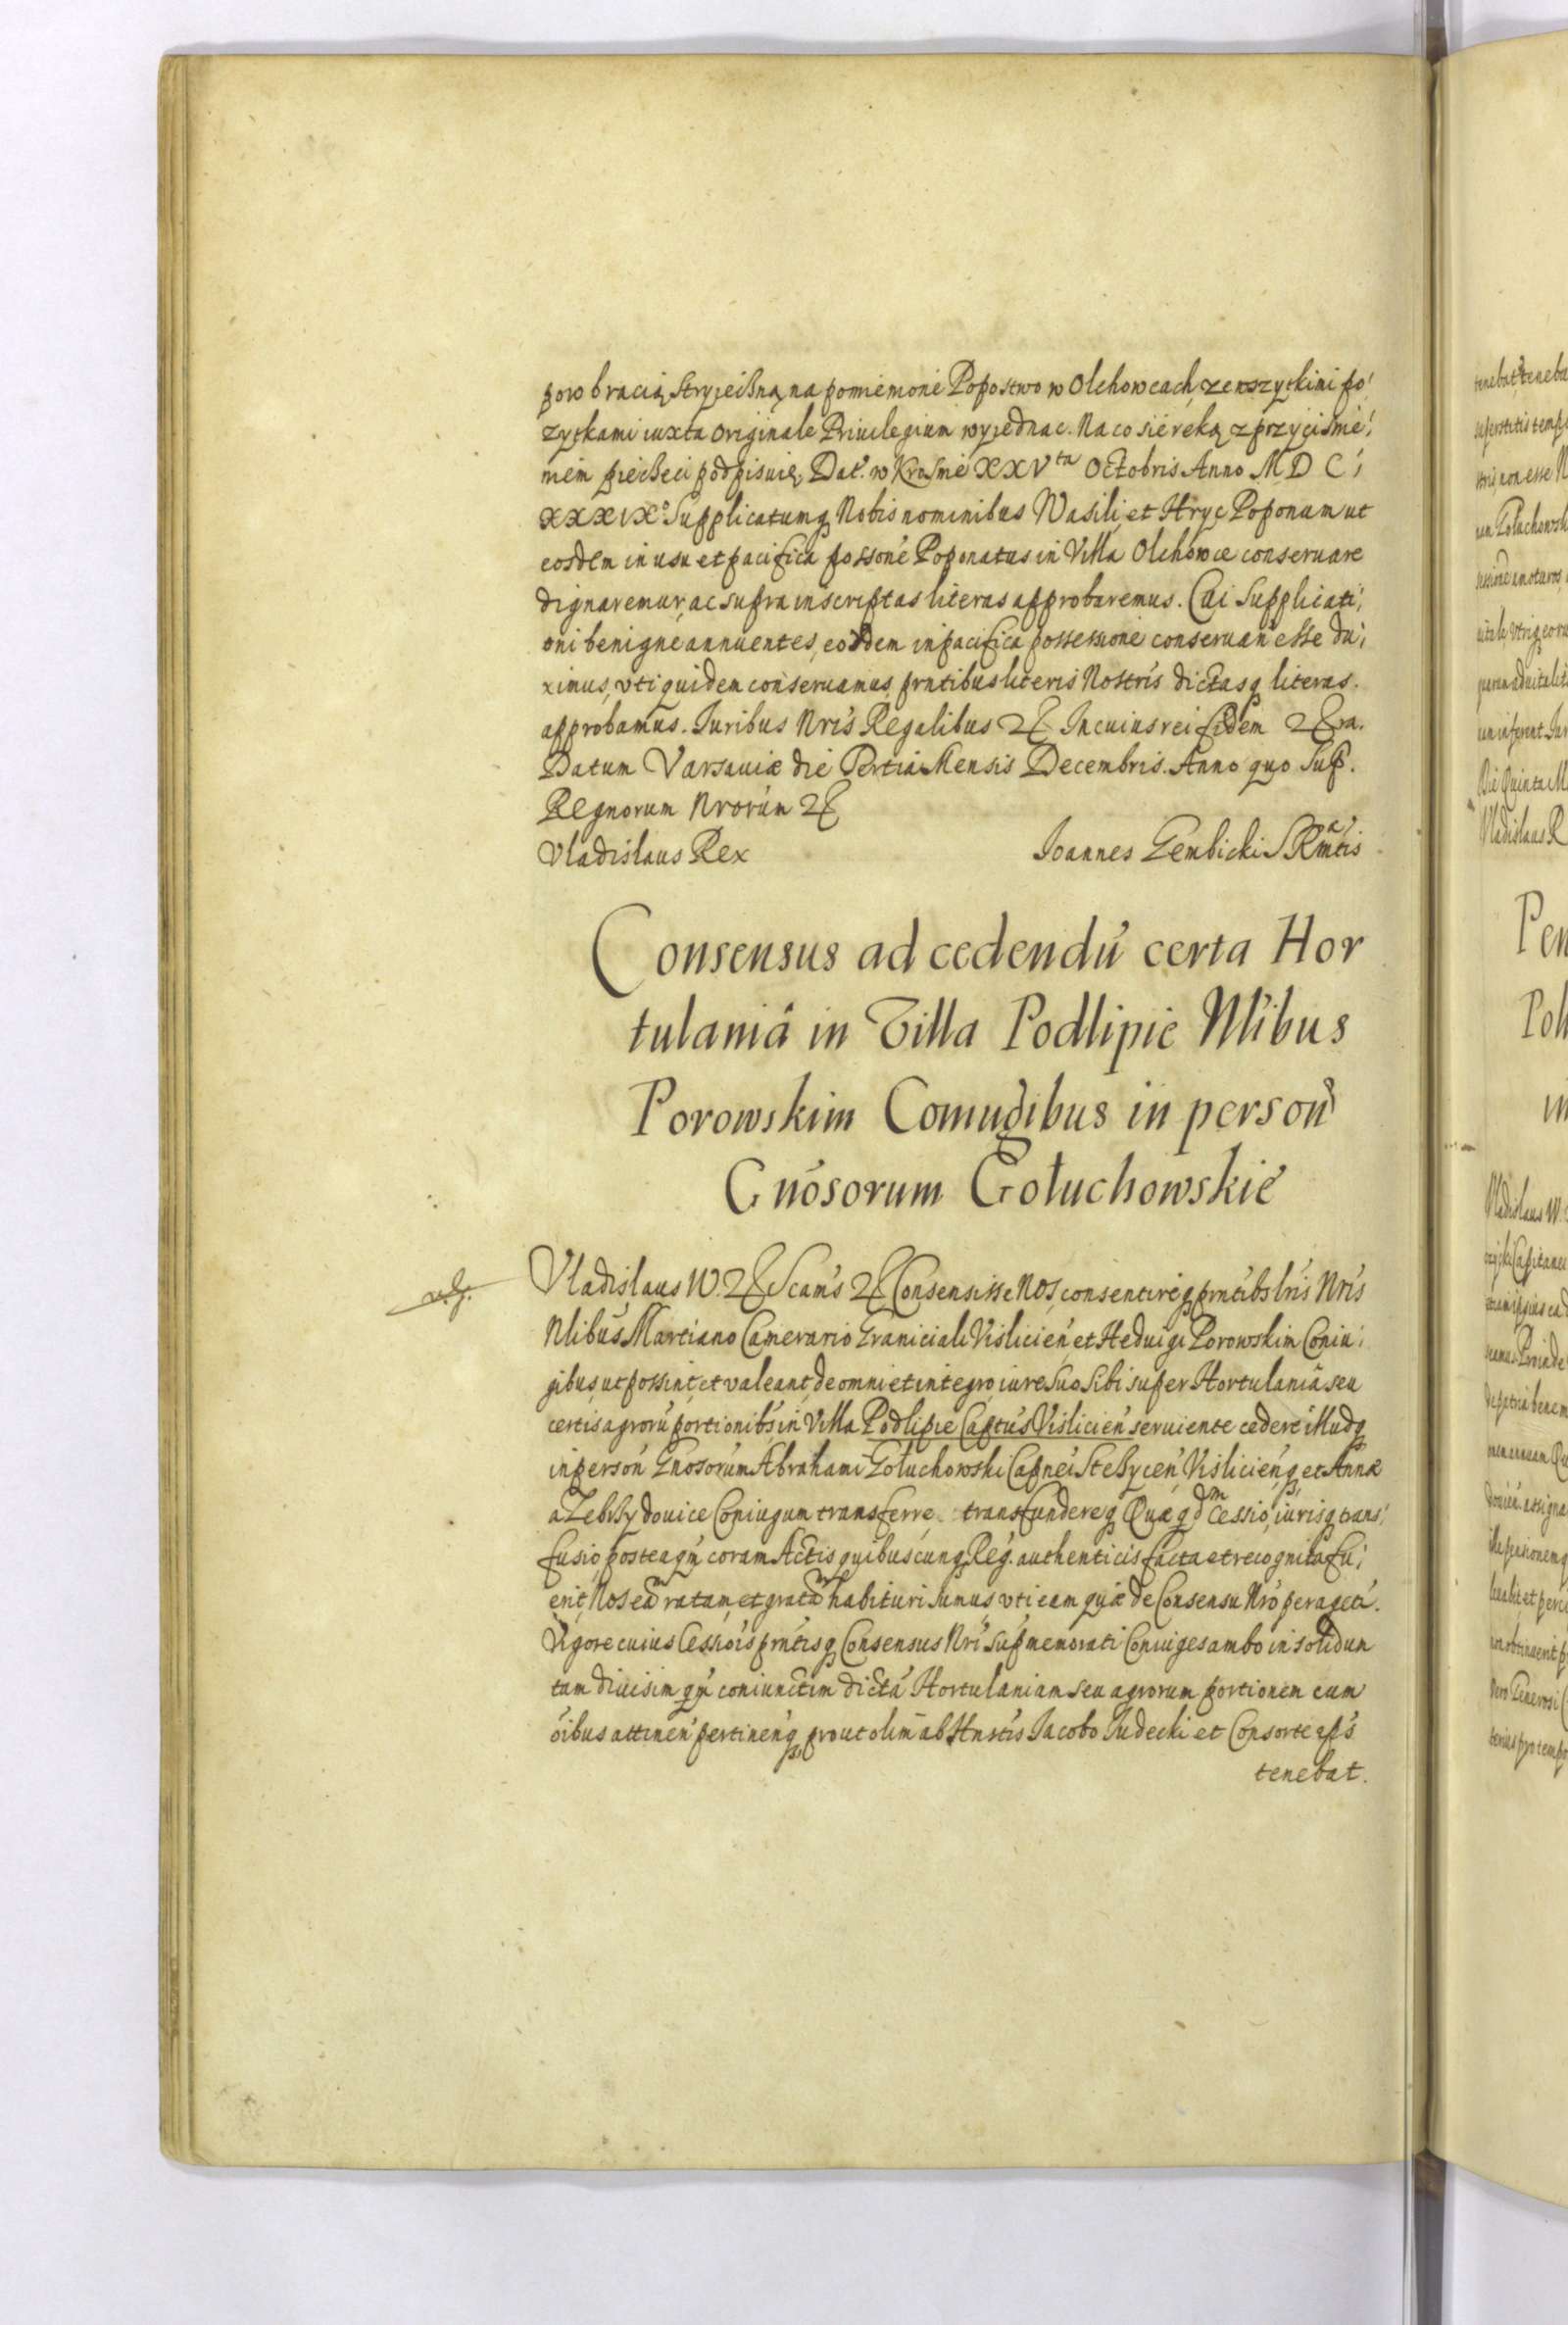 powo bracią Stryieißną na pomienione Popostwo w Olchowcach, ze wszytkimi po,
zytkami iuxta originale Priuilegium wyiednac. Na co sie ręką z przyciśnie,
niem pieczęci podpisuię, Dat. w Krasnie XXVta Octobris Anno MDC,
XXXIXo. Supplicatumq Nobis nominibus Wasili et Hryc Poponum ut
eosdem in usu et pacifica possone Poponatus in Villa Olchowce conseruare
dignaremur, ac supra inscriptas literas approbaremus. Cui Supplicati,
oni benigne annuentes, eosdem in pacifica possessione conseruan esse du,
ximus, vti quidem conseruamus prntibus literis Nostris dictasq literas
approbamus. Iuribus Nris Regalibus &c In cuius rei fidem &c ra.
Datum Varsauiæ die Tertia Mensis Decembris. Anno quo Sup.
Regnorum Nrorum &c
Vladislaus Rex Ioannes Gembicki S R Mtis
Consensus ad cedendu certa Hor
tulania in Villa Podlipie Nlibus
Porowskim Coniugibus in person
Gnosorum Gołuchowskie
Vladislaus IV. &c Scams &c Consensisse Nos, consentireq prntibs lris Nris
Nlibus Martiano Camerario Graniciali Vislicien, et Heduigi Porowskim Coniu,
gibus, ut possint, et valeant, de omni et integro iure Suo Sibi super Hortulania seu
certis agroru portionibs in Villa Podlipie Captus Vislicien seruiente cedere illudq
in person Gnosorum Abrahami Gołuchowski Capnei Steßycen Vislicienq et Annæ
a Zebrßydouice Coniugum transferre transfundereq Quæ qdm cessio, iurisq trans,
fusio, postea qm coram Actis quibuscunq Reg. authenticis facta et recognita fu,
erit, Nos eam ratam, et gratam habituri sumus vti eam quæ de Consensu Nro peraget.
Vigore cuius Cessiois prntisq Consensus Nri supmemorati Coniuges ambo in solidum
tam diuisim qm coniunctim dicta Hortulaniam seu agrorum portionem cum
oibus attinen pertinenq prout olim ab Hnstis Iacobo Iudecki et Consorte eps
tenebat.